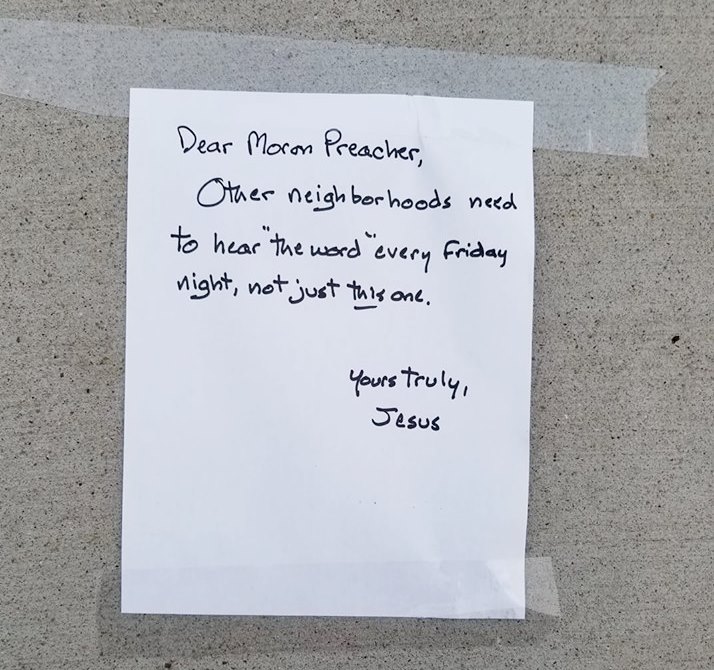 Dear Moron Preacher,
Other neighborhoods need
to hear "the word" every Friday
night, not just this one.
Yours Truly,
Jesus